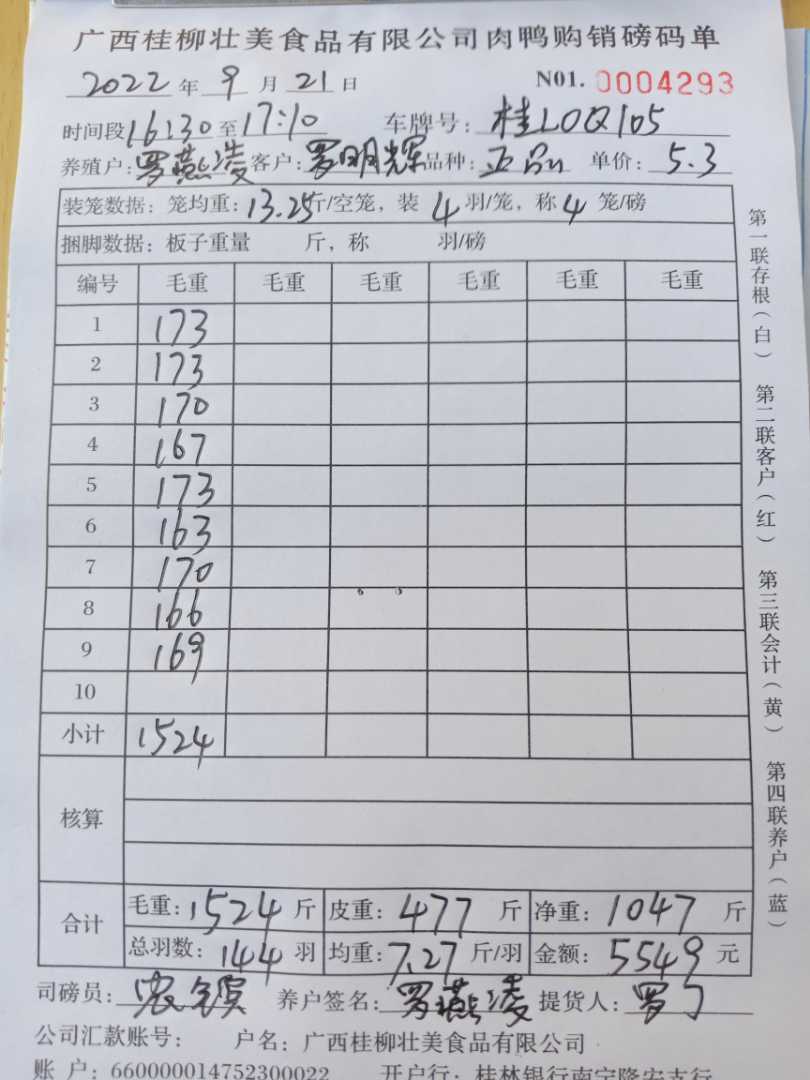 广西桂柳壮美食品有限公司肉鸭购销磅码单
2022 年 9 月 21 日 N01. 0004293
时间段16:30至17:10 车牌号: 桂LOQ105
养殖户:罗燕凌 客户:罗明辉 品种: 单价: 5.3
装笼数据: 笼均重:13.25斤/空笼, 装 4 羽/笼, 称 4 笼/磅
捆脚数据: 板子重量 斤, 称 羽/磅
编号 毛重 毛重 毛重 毛重 毛重 毛重
1 173
2 173
3 170
4 167
5 173
6 163
7 170
8 166
9 169
10
小计 1524
核算
合计 毛重:1524 斤 皮重: 477 斤 净重: 1047 斤
总羽数: 144 羽 均重:7.27 斤/羽 金额: 5549 元
司磅员: 养户签名: 罗燕凌 提货人:
公司汇款账号: 户名: 广西桂柳壮美食品有限公司
账 户: 660000014752300022 开户行: 桂林银行南宁隆安支行
第一联存根(白) 第二联客户(红) 第三联会计(黄) 第四联养户(蓝)